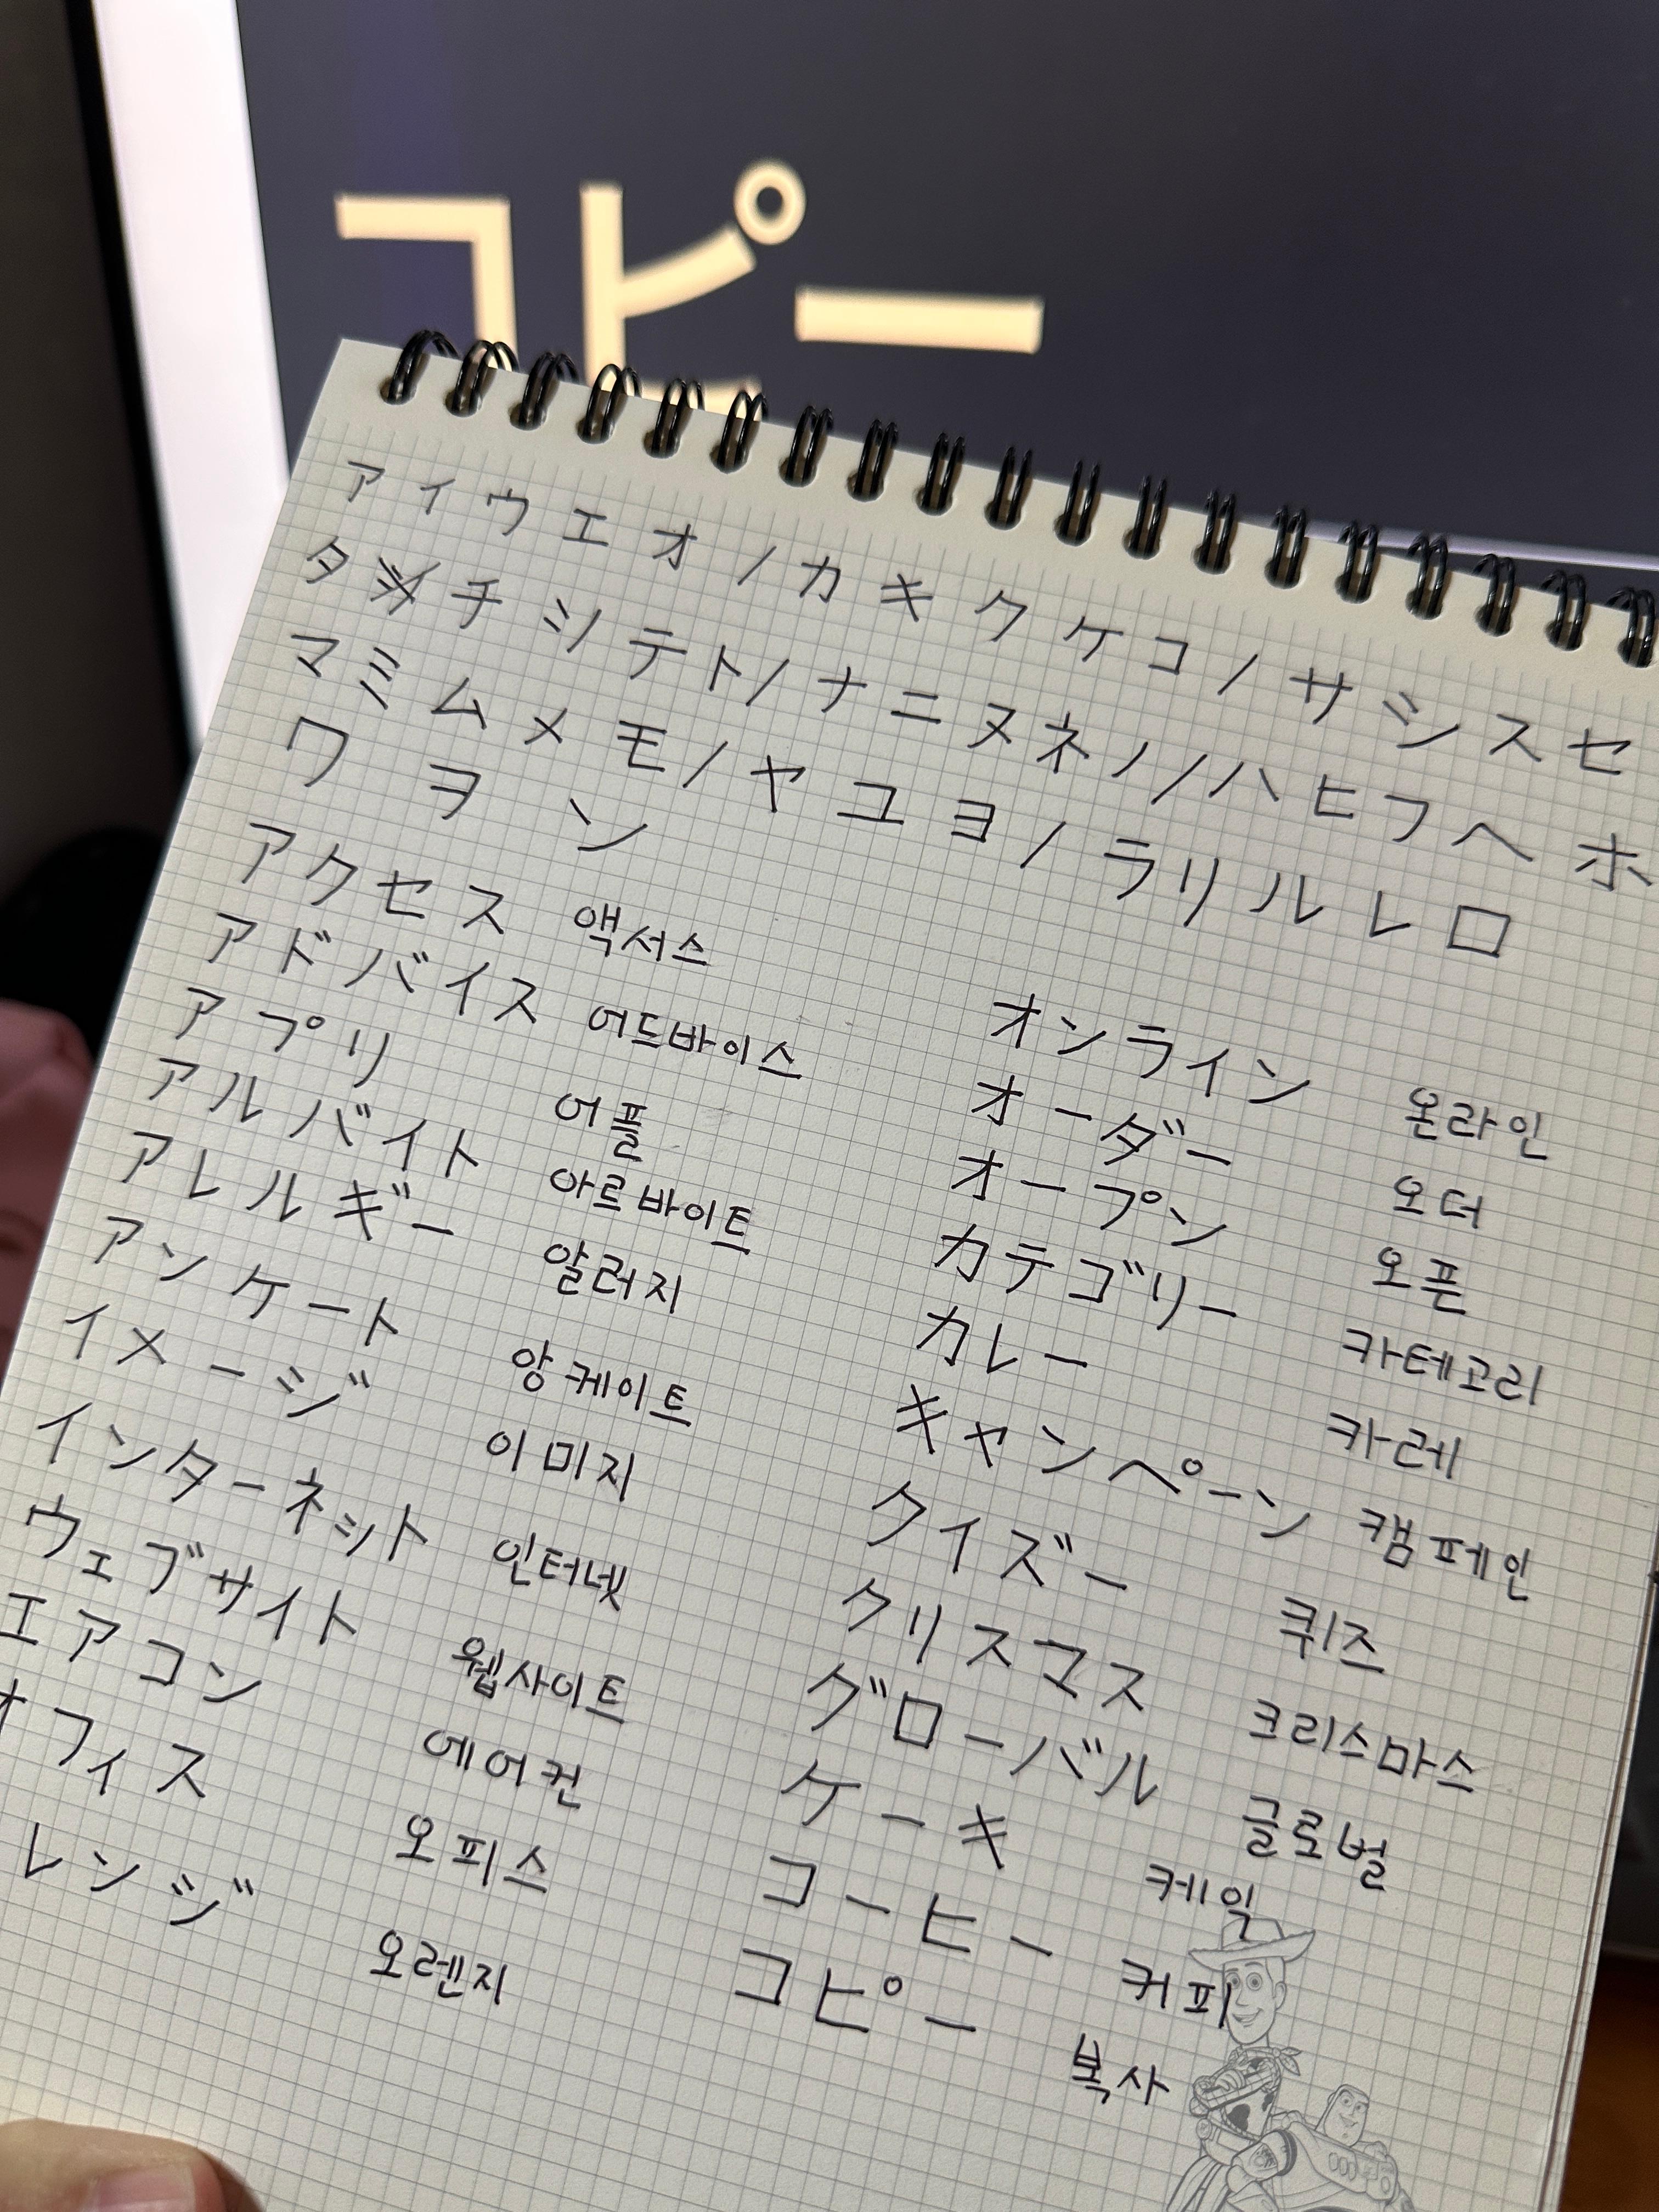 コピー
アイウエオ/カキクケコ/サシスセ
タチツテト/ナニヌネノ/ハヒフヘホ
マミムメモ/ヤユヨ/ラリルレロ
ワヲン
アクセス 액서스
アドバイス 어드바이스
アプリ 어플
アルバイト 아르바이트
アレルギー 알러지
アンケート 앙케이트
イメージ 이미지
インターネット 인터넷
ウェブサイト 웹사이트
エアコン 에어컨
オフィス 오피스
レンジ 오렌지
オンライン 온라인
オーダー 오더
オープン 오픈
カテゴリー 카테고리
カレー 카레
キャンペーン 캠페인
クイズー 퀴즈
クリスマス 크리스마스
グローバル 글로벌
ケーキ 케익
コーヒー 커피
コピー 복사